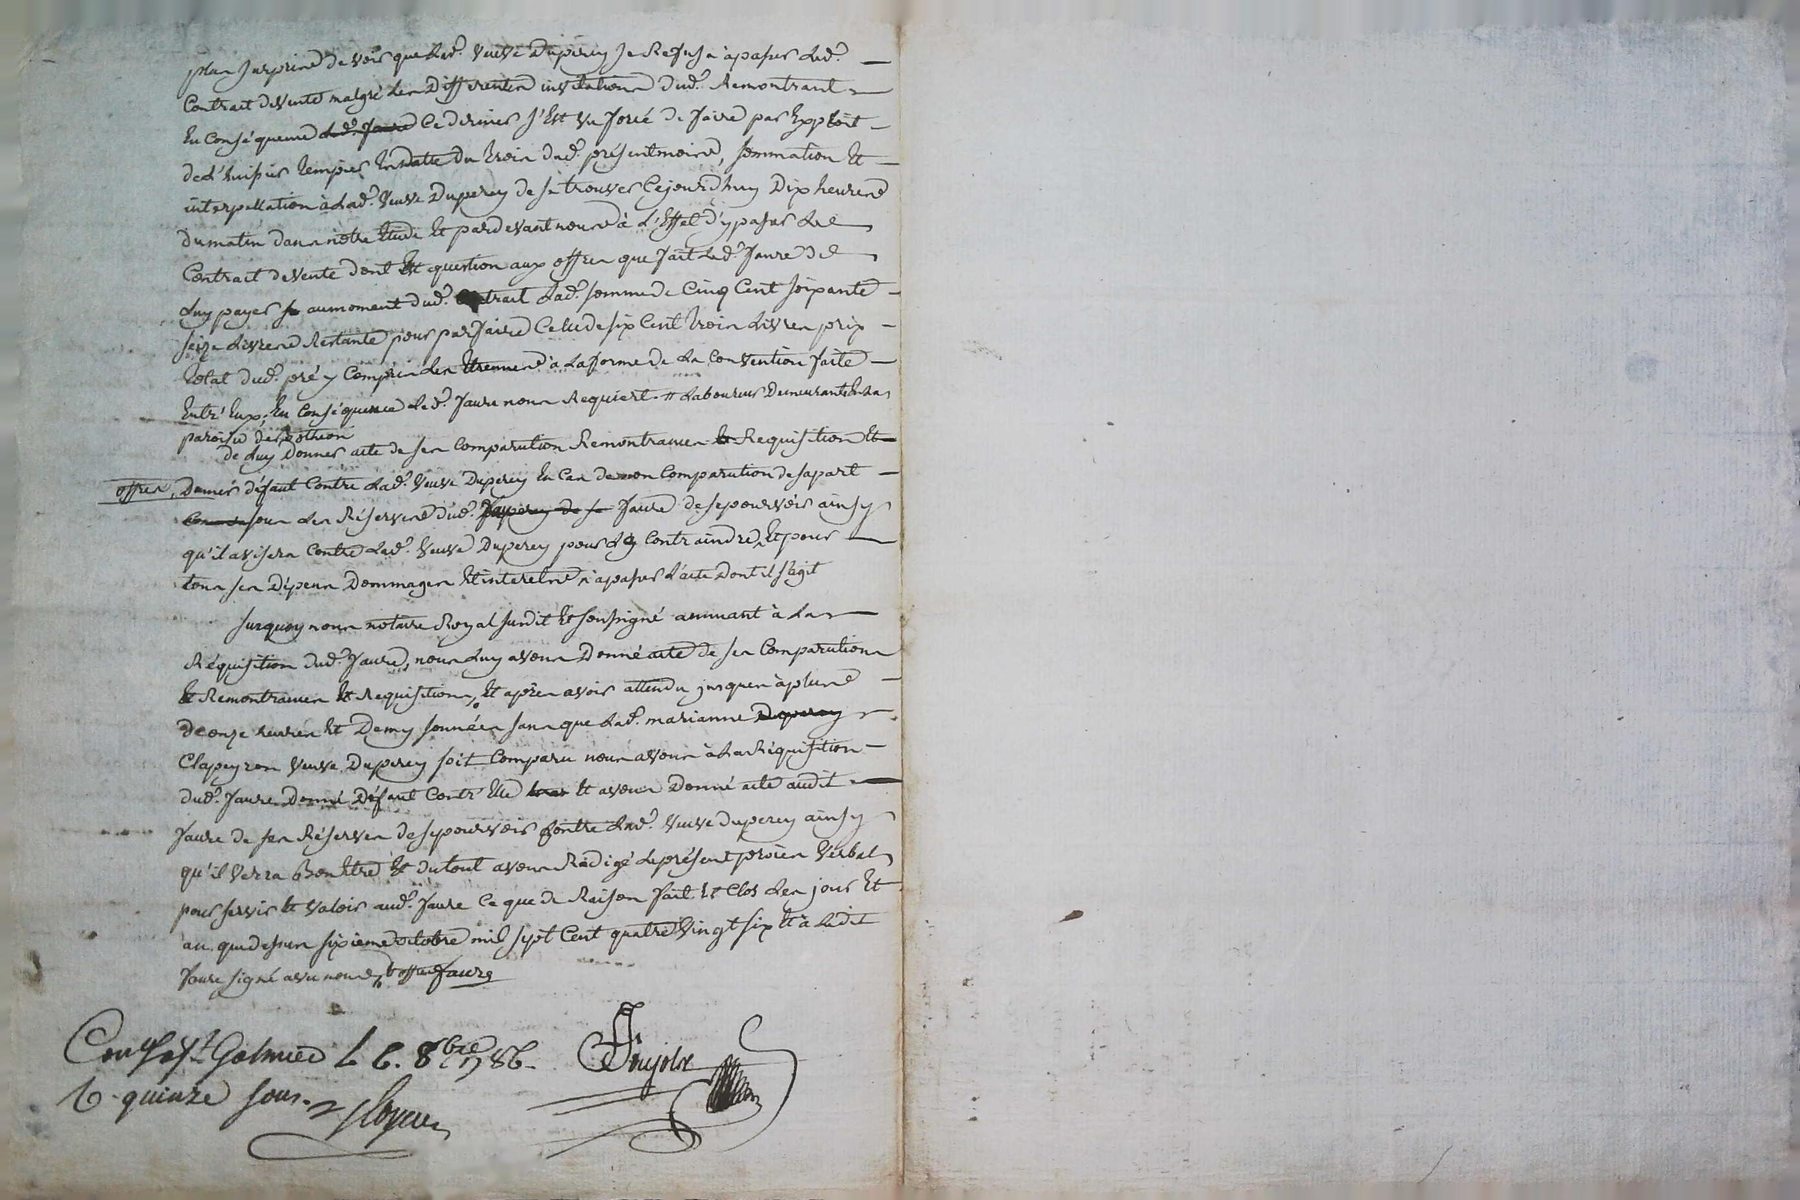 plus surprins de voir que lad.e veuve Duperey se Refuse à passer led.
Contrat de vente malgré les Differentes invitations dud. Remontrant
En Conséquence led. Faure Ce dernier s'Est vu forcé de faire par Exploit
de l'huissier En datte du trois dud. présent mois, sommation Et
interpellation à lad. Veuve Duperey de se trouver Cejourd'huy Dix heures
du matin dans notre Etude Et pardevant nous à L'Effet d'y passer Le
Contrat de Vente dont Est question aux offres que fait led. Faure de
Luy payer au moment dud. Contrat lad. somme de Cinq Cent soixante
seize Livres Restante pour parfaire Celle de six Cent trois Livres prix
total dud. pré y Compris les Etrennes à la forme de la Convention faite
Entr'Eux. En Conséquence led. Faure nous Requiert # Laboureur Demeurant En la
paroisse de
de Luy Donner acte de ses Comparution Remontrances Et Requisition Et
offres, Donner défaut Contre lad. Veuve Duperey En Cas de non Comparution de sa part
sous les Réserves dud. Duperey de se Faure de se pourvoir ainsy
qu'il avisera Contre lad. Veuve Duperey pour L'y Contraindre, Et pour
tous ses Dépens Dommages Et interets à passer l'acte Dont il s'agit
surquoy nous notaire Royal susdit Et soussigné annuant à La
Réquisition dud. Faure, nous Luy avons Donné acte de ses Comparution
Et Remontrances Et Requisitions, Et après avoir attendu jusques à plus
de onze heures Et Demy sonnées sans que lad. marianne Duperey
Clapeyron Veuve Duperey soit Comparu nous avons à la Réquisition
dud. Faure Donné Défaut Contr'Elle Et avons Donné acte audit
Faure de ses Réserves de se pourvoir Contre lad. Veuve duperey ainsy
qu'il Verra Bon Etre Et du tout avons Rédigé le présent procès Verbal
pour servir Et Valoir aud. Faure Ce que de Raison fait Et Clos Les jour Et
an que dessus sixieme octobre mil sept Cent quatre Vingt six Et a Ledit
Faure signé avec nous Et offres Faure
Con.lé à S.t Galmier L 6. 8bre 1786.
R. quinze sous.